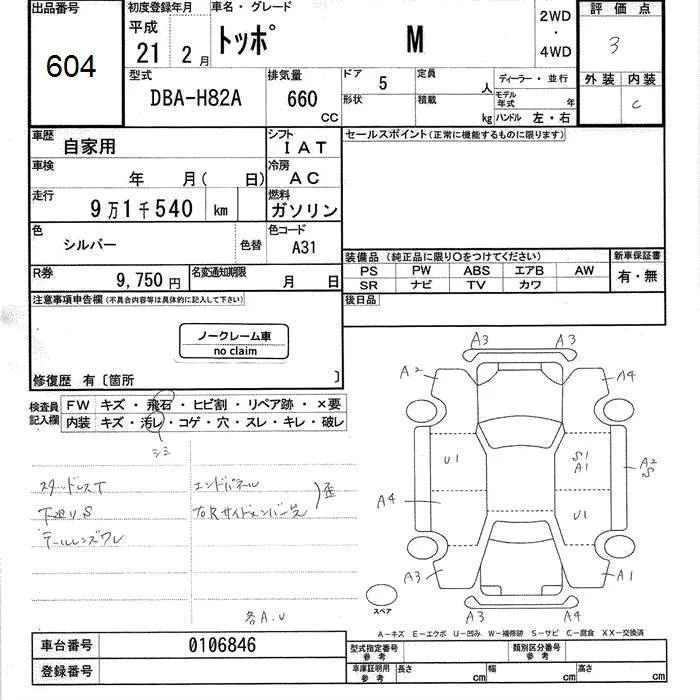 出品番号
604
初度登録年月
平成
21 2月
車名・グレード
トッポ M
2WD
・
4WD
評価点
3
外装 内装
C
型式
DBA-H82A
排気量
660
CC
ドア 5
形状
定員 人
積載 kg
ディーラー・並行
モデル
年式 年
ハンドル 左・右
車歴
自家用
シフト
IAT
セールスポイント(正常に機能するものに限ります)
車検
年 月( 日)
冷房
AC
走行
9万1千540 km
燃料
ガソリン
色
シルバー
色替
色コード
A31
装備品 (純正品に限り○をつけてください)
PS PW ABS エアB AW
SR ナビ TV カワ
新車保証書
有・無
R券
9,750円
名変通知期限
月 日
後日品
注意事項申告欄(不具合内容等は具体的に記入して下さい)
ノークレーム車
no claim
修復歴 有〔箇所 〕
検査員
記入欄
FW キズ・飛石・ヒビ割・リペア跡・×要
内装 キズ・汚レ・コゲ・穴・スレ・キレ・破レ
シミ
スタッドレスT
下廻りS
テールレンズワレ
エンドパネル
右Rサイドメンバー先
歪
各A.U
A3 A3
A2 A4
U1 S1
A1
A2
S
A4 U1
A3 A1
A3 A4
スペア
A-キズ E-エクボ U-凹み W-補修跡 S-サビ C-腐食 XX-交換済
車台番号
0106846
登録番号
型式指定番号
参考
類別区分番号
参考
車庫証明用
参考
長さ cm
幅 cm
高さ cm